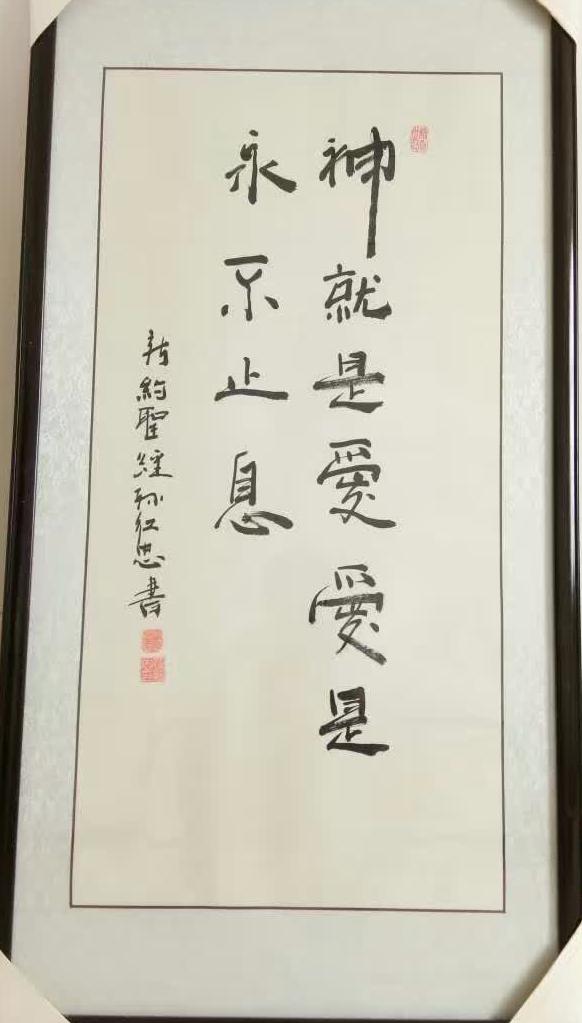 神就是愛愛是
永不止息
新約聖經孙红忠書